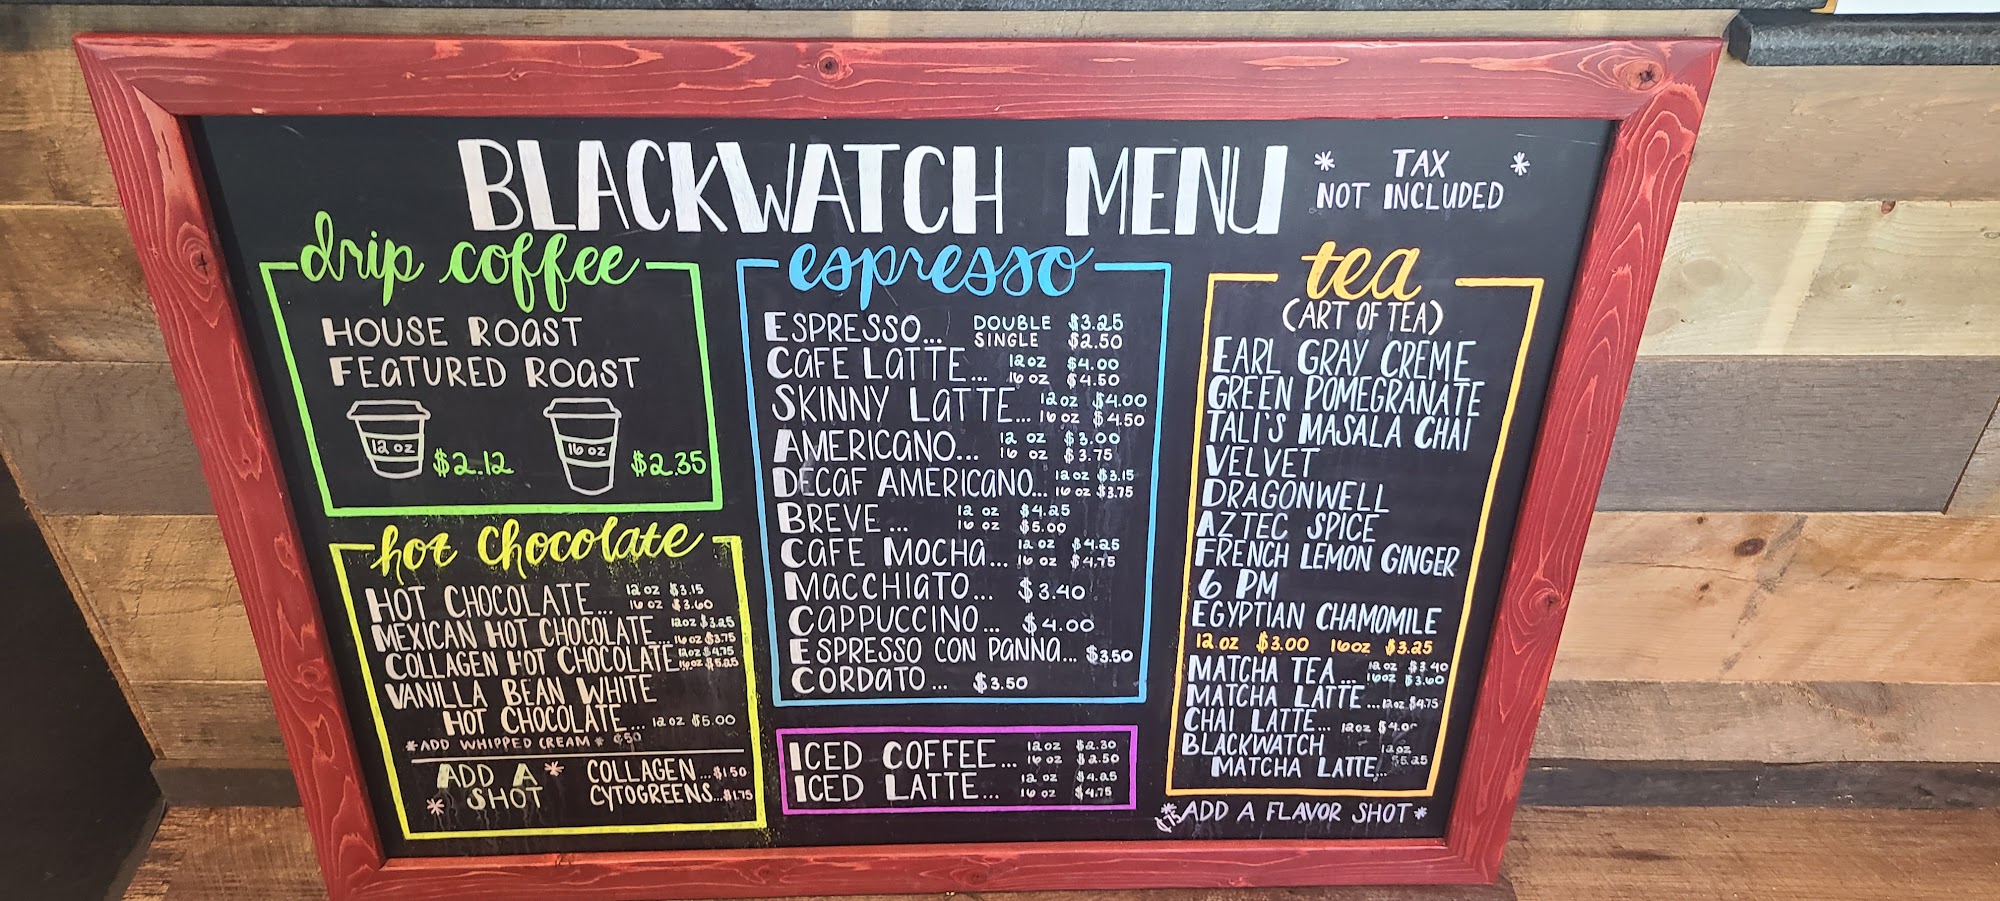 BLACKWATCH MENU
* TAX *
NOT INCLUDED
drip coffee
HOUSE ROAST
FEATURED ROAST
12 oz $2.12
16 oz $2.35
hot chocolate
HOT CHOCOLATE... 12 oz $3.15
16 oz $3.60
MEXICAN HOT CHOCOLATE... 12oz $3.25
16oz $3.75
COLLAGEN HOT CHOCOLATE... 12oz $4.75
16oz $5.25
VANILLA BEAN WHITE
HOT CHOCOLATE... 12 oz $5.00
*ADD WHIPPED CREAM* ¢50
ADD A *
* SHOT
COLLAGEN...$1.50
CYTOGREENS...$1.75
espresso
ESPRESSO... DOUBLE $3.25
SINGLE $2.50
CAFE LATTE... 12oz $4.00
16 oz $4.50
SKINNY LATTE... 12oz $4.00
16 oz $4.50
AMERICANO... 12 oz $3.00
16 oz $3.75
DECAF AMERICANO... 12 oz $3.15
16 oz $3.75
BREVE... 12 oz $4.25
16 oz $5.00
CAFE MOCHA... 12 oz $4.25
16 oz $4.75
MACCHIATO... $3.40
CAPPUCCINO... $4.00
ESPRESSO CON PANNA... $3.50
CORDATO... $3.50
ICED COFFEE... 12oz $2.30
16 oz $2.50
ICED LATTE... 12 oz $4.25
16 oz $4.75
tea
(ART OF TEA)
EARL GRAY CREME
GREEN POMEGRANATE
TALI'S MASALA CHAI
VELVET
DRAGONWELL
AZTEC SPICE
FRENCH LEMON GINGER
6 PM
EGYPTIAN CHAMOMILE
12 oz $3.00 16oz $3.25
MATCHA TEA... 12 oz $3.40
16oz $3.60
MATCHA LATTE...12oz $4.75
CHAI LATTE... 12oz
BLACKWATCH 12oz
MATCHA LATTE... $5.25
¢75 *ADD A FLAVOR SHOT*